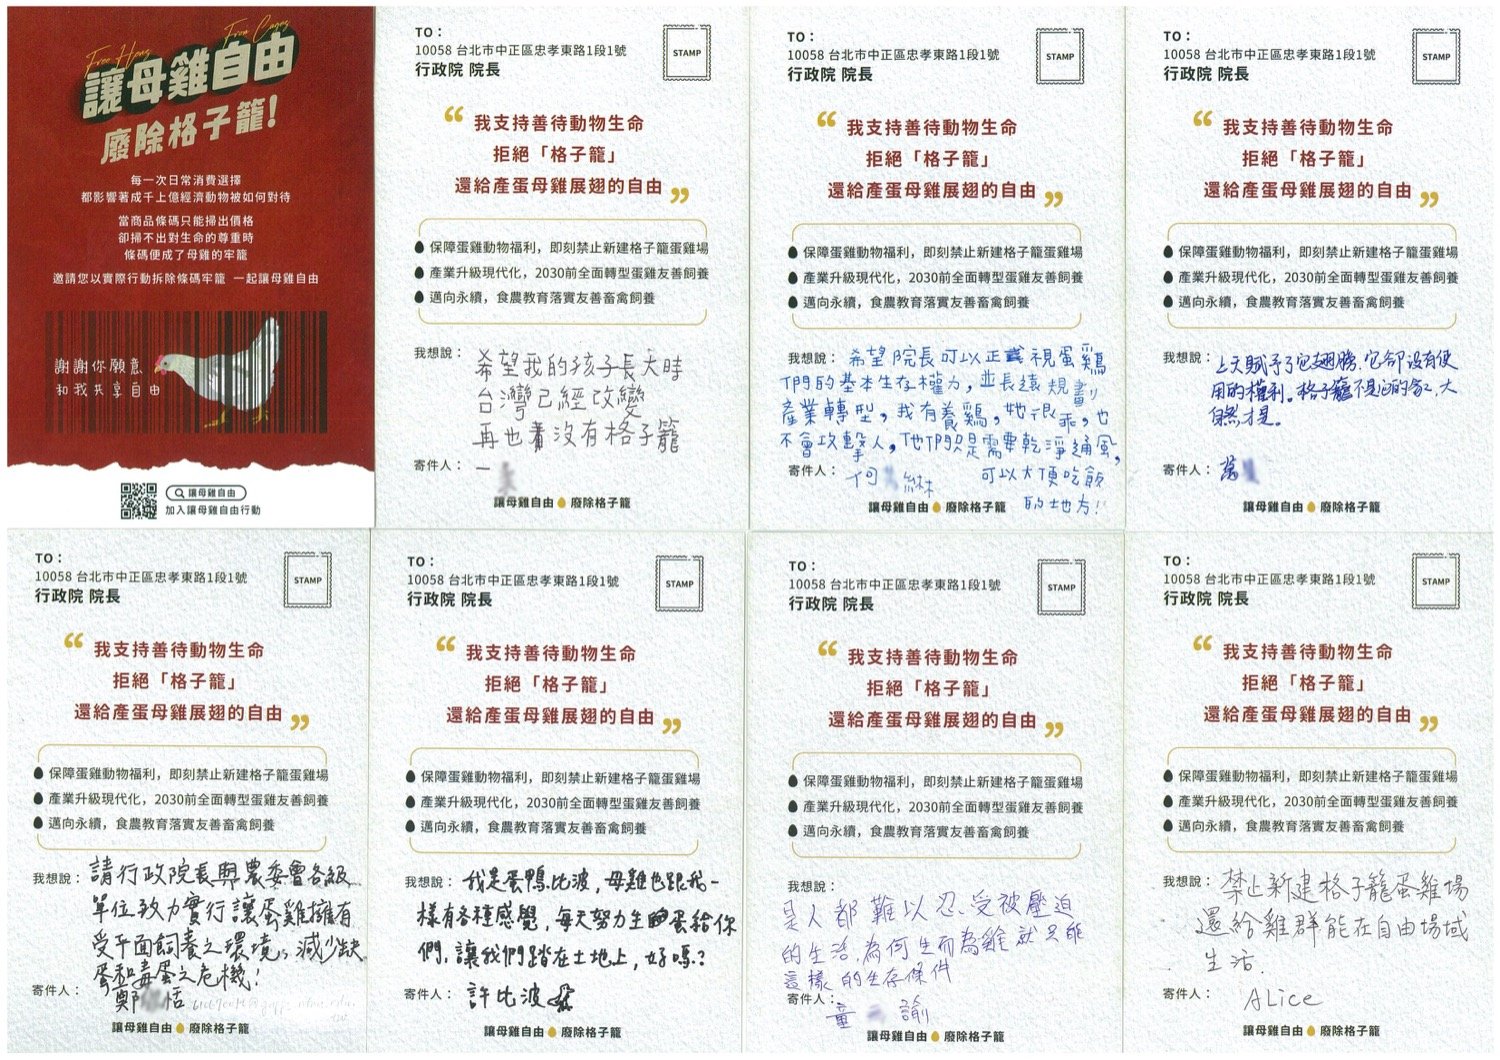 Free Hens
From Cages
讓母雞自由
廢除格子籠!
每一次日常消費選擇
都影響著成千上億經濟動物被如何對待
當商品條碼只能掃出價格
卻掃不出對生命的尊重時
條碼便成了母雞的牢籠
邀請您以實際行動拆除條碼牢籠 一起讓母雞自由
謝謝你願意
和我共享自由
讓母雞自由
加入讓母雞自由行動
TO：
10058 台北市中正區忠孝東路1段1號
行政院 院長
STAMP
“我支持善待動物生命
拒絕「格子籠」
還給產蛋母雞展翅的自由”
保障蛋雞動物福利，即刻禁止新建格子籠蛋雞場
產業升級現代化，2030前全面轉型蛋雞友善飼養
邁向永續，食農教育落實友善畜禽飼養
我想說：希望我的孩子長大時
台灣已經改變
再也沒有格子籠
寄件人：
讓母雞自由 廢除格子籠
TO：
10058 台北市中正區忠孝東路1段1號
行政院 院長
STAMP
“我支持善待動物生命
拒絕「格子籠」
還給產蛋母雞展翅的自由”
保障蛋雞動物福利，即刻禁止新建格子籠蛋雞場
產業升級現代化，2030前全面轉型蛋雞友善飼養
邁向永續，食農教育落實友善畜禽飼養
我想說：希望院長可以正視蛋鷄
們的基本生存權力，並長遠規劃
產業轉型，我有養鷄，她很乖，也
不會攻擊人，他們只是需要乾淨通風，
可以大便吃飯
的地方!!
寄件人：何
讓母雞自由 廢除格子籠
TO：
10058 台北市中正區忠孝東路1段1號
行政院 院長
STAMP
“我支持善待動物生命
拒絕「格子籠」
還給產蛋母雞展翅的自由”
保障蛋雞動物福利，即刻禁止新建格子籠蛋雞場
產業升級現代化，2030前全面轉型蛋雞友善飼養
邁向永續，食農教育落實友善畜禽飼養
我想說：上天賦予了它翅膀，它卻沒有使
用的權利。格子籠不是它的家，大
自然才是。
寄件人：
讓母雞自由 廢除格子籠
TO：
10058 台北市中正區忠孝東路1段1號
行政院 院長
STAMP
“我支持善待動物生命
拒絕「格子籠」
還給產蛋母雞展翅的自由”
保障蛋雞動物福利，即刻禁止新建格子籠蛋雞場
產業升級現代化，2030前全面轉型蛋雞友善飼養
邁向永續，食農教育落實友善畜禽飼養
我想說：請行政院長與農委會各級
單位致力實行讓蛋雞擁有
受平面飼養之環境。減少缺
蛋和毒蛋之危機！
寄件人：鄭 恬
讓母雞自由 廢除格子籠
TO：
10058 台北市中正區忠孝東路1段1號
行政院 院長
STAMP
“我支持善待動物生命
拒絕「格子籠」
還給產蛋母雞展翅的自由”
保障蛋雞動物福利，即刻禁止新建格子籠蛋雞場
產業升級現代化，2030前全面轉型蛋雞友善飼養
邁向永續，食農教育落實友善畜禽飼養
我想說：我是蛋鴨比波，母雞也跟我一
樣有各種感覺，每天努力生蛋給你
們，讓我們踏在土地上，好嗎？
寄件人：許比波
讓母雞自由 廢除格子籠
TO：
10058 台北市中正區忠孝東路1段1號
行政院 院長
STAMP
“我支持善待動物生命
拒絕「格子籠」
還給產蛋母雞展翅的自由”
保障蛋雞動物福利，即刻禁止新建格子籠蛋雞場
產業升級現代化，2030前全面轉型蛋雞友善飼養
邁向永續，食農教育落實友善畜禽飼養
我想說：
是人都難以忍受被壓迫
的生活，為何生而為雞就只能
這樣的生存條件
寄件人：童 諭
讓母雞自由 廢除格子籠
TO：
10058 台北市中正區忠孝東路1段1號
行政院 院長
STAMP
“我支持善待動物生命
拒絕「格子籠」
還給產蛋母雞展翅的自由”
保障蛋雞動物福利，即刻禁止新建格子籠蛋雞場
產業升級現代化，2030前全面轉型蛋雞友善飼養
邁向永續，食農教育落實友善畜禽飼養
我想說：禁止新建格子籠蛋雞場
還給雞群能在自由場域
生活.
寄件人：ALice
讓母雞自由 廢除格子籠